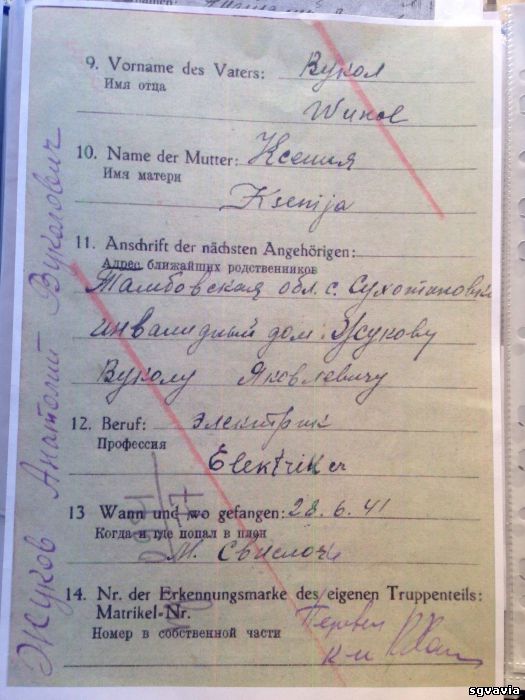 9. Vorname des Vaters: Вукол
Имя отца
Wukol
10. Name der Mutter: Ксения
Имя матери
Ksenija
11. Anschrift der nächsten Angehörigen:
Адрес ближайших родственников
Тамбовская обл. с. Сухотановка
инвалидный дом. Жукову
Вуколу Яковлевичу
12. Beruf: электрик
Профессия
Elektriker
13 Wann und wo gefangen: 28. 6. 41
Когда и где попал в плен
М. Свислочь
14. Nr. der Erkennungsmarke des eigenen Truppenteils:
Matrikel-Nr.
Номер в собственной части
Перевел
Жуков Анатолий Вуколович
sgvavia